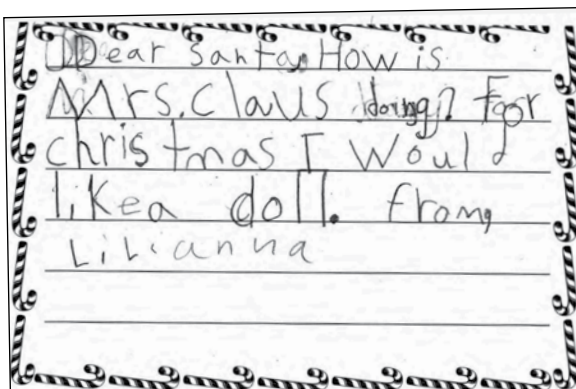 Dear Santa, How is
Mrs. Claus doing? For
christmas I Would
like a doll. from,
Lilianna